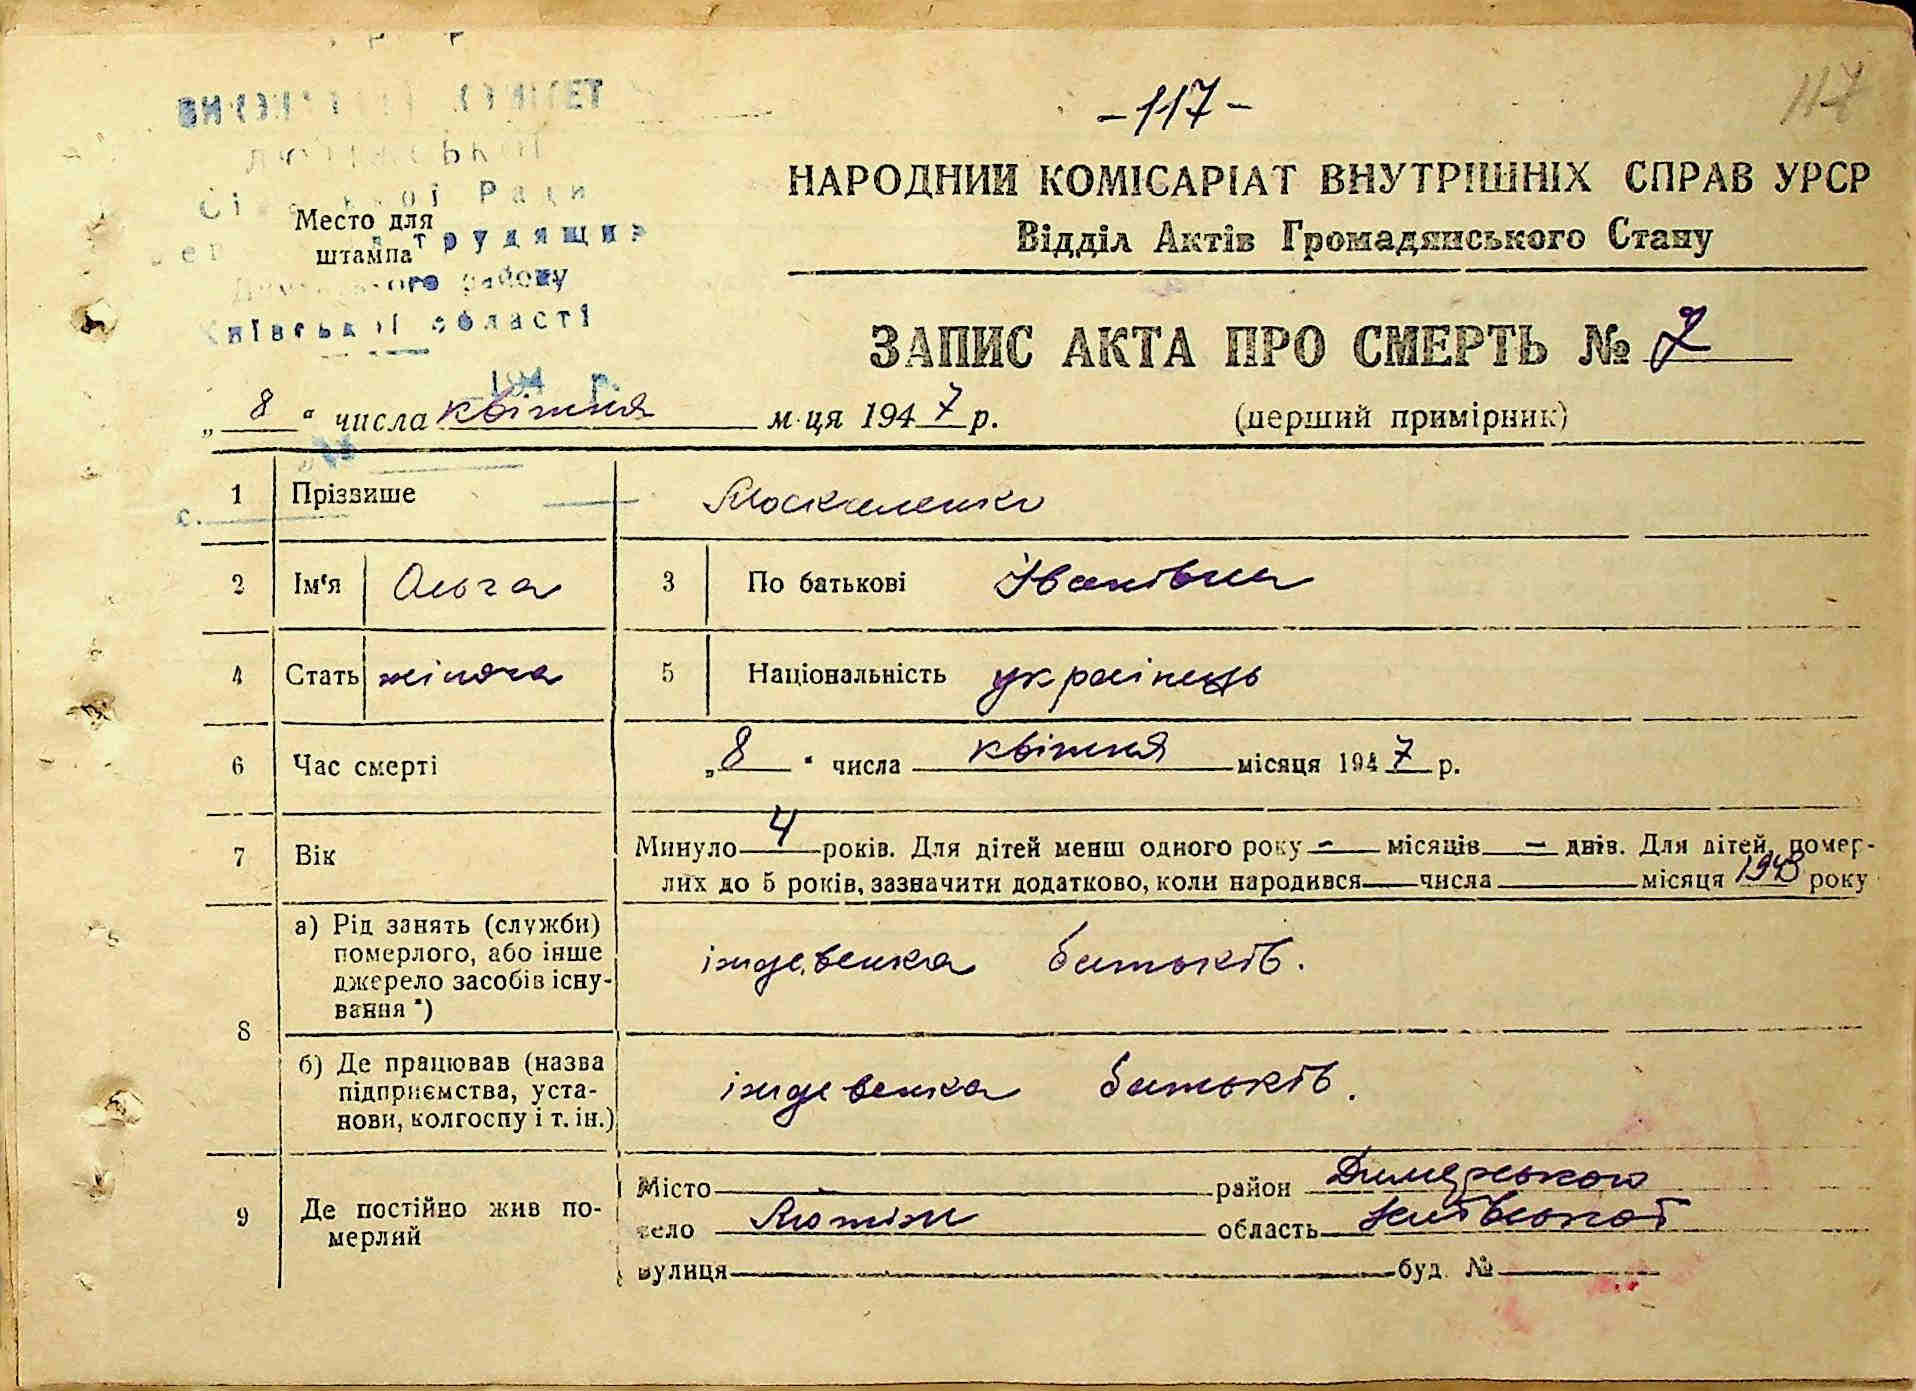 -117-
117
КОМІТЕТ
Ради
трудящих
району
Київської області
194 р.
Место для
штампа
НАРОДНИЙ КОМІСАРІАТ ВНУТРІШНІХ СПРАВ УРСР
Відділ Актів Громадянського Стану
ЗАПИС АКТА ПРО СМЕРТЬ № 7
„ 8 " числа квітня м-ця 1947 р. (перший примірник)
1 Прізвише Москаленко
2 Ім'я Ольга 3 По батькові Іванівна
4 Стать жіноча 5 Національність українець
6 Час смерті „ 8 " числа квітня місяця 1947 р.
7 Вік Минуло 4 років. Для дітей менш одного року - місяців - днів. Для дітей, помер-
лих до 5 років, зазначити додатково, коли народився числа місяця 1943 року
8 а) Рід занять (служби)
померлого, або інше
джерело засобів існу-
вання *)
іждевенка батьків.
б) Де працював (назва
підприємства, уста-
нови, колгоспу і т. ін.)
іждевенка батьків.
9 Де постійно жив по-
мерлий
Місто район Димерського
село Лютіж область Київської
вулиця буд. №